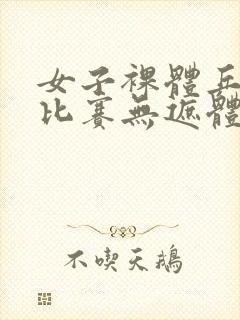 女子裸體乒
比賽無遮體
不喫天鵝